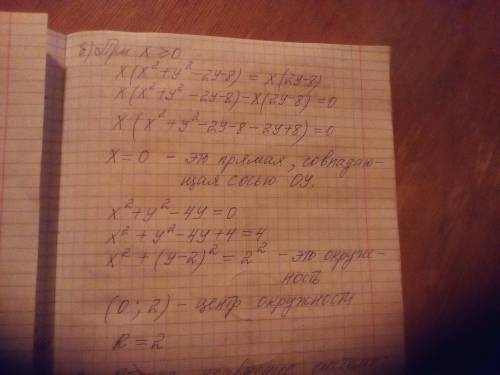 б) При x ≥ 0
x(x² + y² - 2y - 8) = x(2y - 8)
x(x² + y² - 2y - 8) - x(2y - 8) = 0
x(x² + y² - 2y - 8 - 2y + 8) = 0
x = 0 - это прямая, совпадаю-
щая с осью OY.
x² + y² - 4y = 0
x² + y² - 4y + 4 = 4
x² + (y - 2)² = 2² - это окруж-
ность
(0; 2) - центр окружност
R = 2